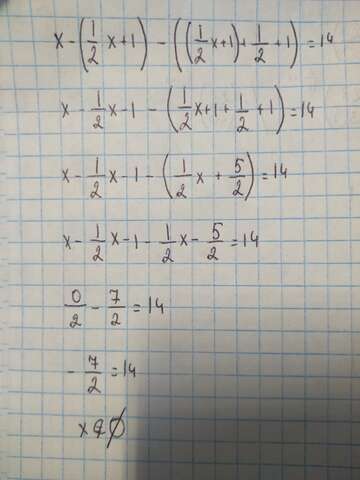 x - (1/2 x + 1) - ((1/2 x + 1) + 1/2 + 1) = 14
x - 1/2 x - 1 - (1/2 x + 1 + 1/2 + 1) = 14
x - 1/2 x - 1 - (1/2 x + 5/2) = 14
x - 1/2 x - 1 - 1/2 x - 5/2 = 14
0/2 - 7/2 = 14
- 7/2 = 14
x ∅